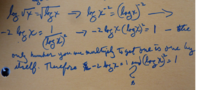 log √x = √log x ⇒ log x⁻² = (log x)² →
-2 log x = 1/(log x)² → -2 log x (log x)² = 1 - the
only number you can multiply to get one is one by
itself. Therefore -2 log x = 1 and (log x)² = 1